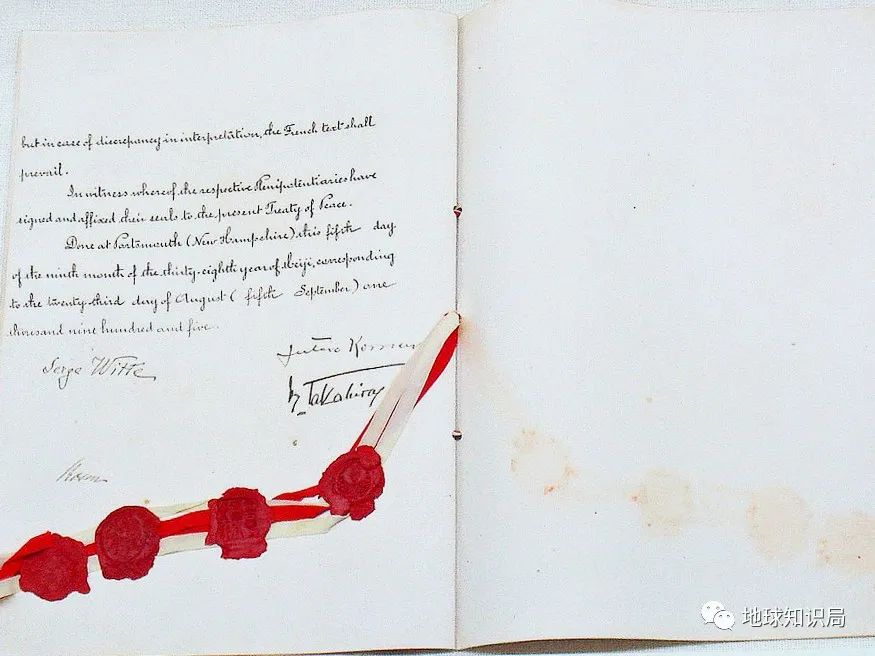 but in case of discrepancy in interpretation, the French text shall
prevail.
In witness whereof, the respective Plenipotentiaries have
signed and affixed their seals to the present Treaty of Peace.
Done at Portsmouth (New Hampshire) this fifth day
of the ninth month of the thirty-eighth year of Meiji, corresponding
to the twenty-third day of August (fifth September) one
thousand nine hundred and five.
Serge Witte
Jutaro Komura
K. Takahira
Rosen
地球知识局